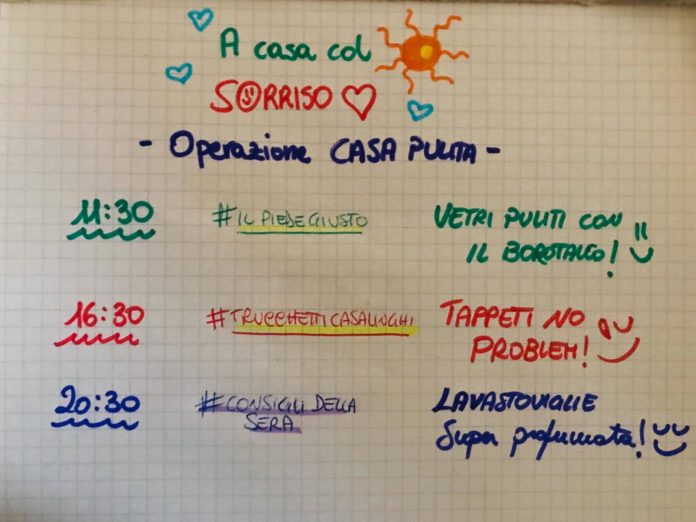 A casa col
SORRISO
- Operazione CASA PULITA -
11:30 #IL PIEDE GIUSTO VETRI PULITI CON
IL BOROTALCO!
16:30 #TRUCCHETTICASALINGHI TAPPETI NO
PROBLEM!
20:30 #CONSIGLI DELLA LAVASTOVIGLIE
SERA Super profumata!